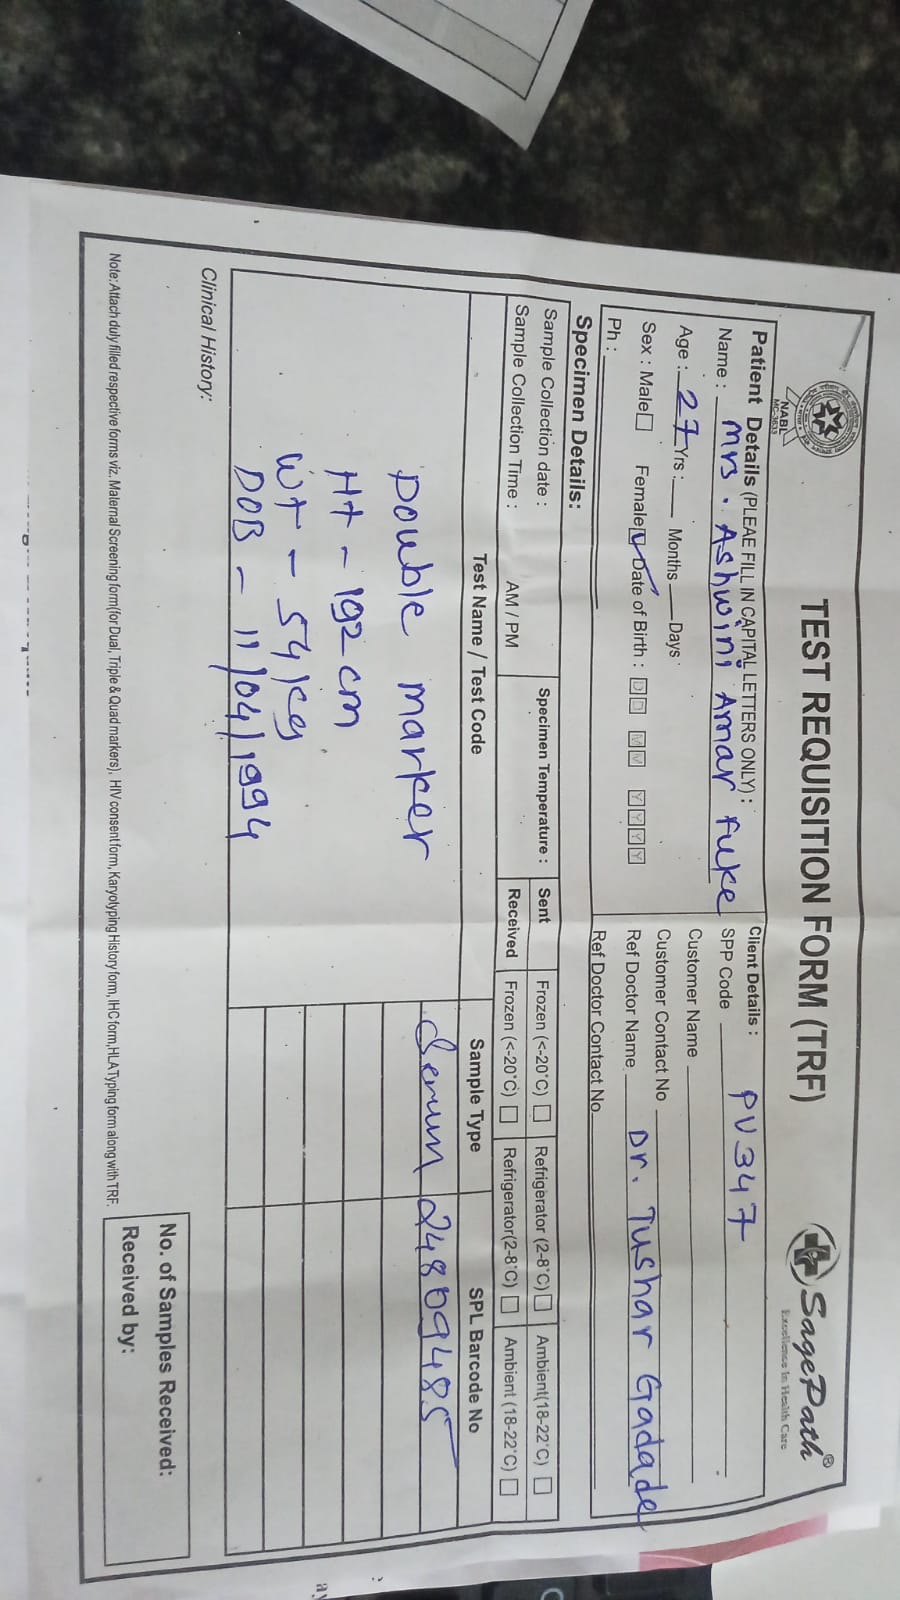 TEST REQUISITION FORM (TRF)
SagePath®
Excellence In Health Care
NABL
MC-3633
Patient Details (PLEAE FILL IN CAPITAL LETTERS ONLY) :
Name : Mrs. Ashwini Amar Fuke
Age : 27 Yrs : Months Days
Sex : Male Female Date of Birth : DD MM YYYY
Ph :
Client Details :
SPP Code PV347
Customer Name
Customer Contact No
Ref Doctor Name Dr. Tushar Gadade
Ref Doctor Contact No
Specimen Details:
Sample Collection date : Specimen Temperature : Sent Frozen (<-20°C) Refrigerator (2-8°C) Ambient(18-22°C)
Sample Collection Time : AM / PM Received Frozen (<-20°C) Refrigerator(2-8°C) Ambient (18-22°C)
Test Name / Test Code Sample Type SPL Barcode No
Double marker Serum 24809485
Ht - 192 cm
Wt - 54 kg
DOB - 11/04/1994
Clinical History:
No. of Samples Received:
Received by:
Note: Attach duly filled respective forms viz. Maternal Screening form(for Dual, Triple & Quad markers), HIV consent form, Karyotyping History form, IHC form, HLA Typing form along with TRF.